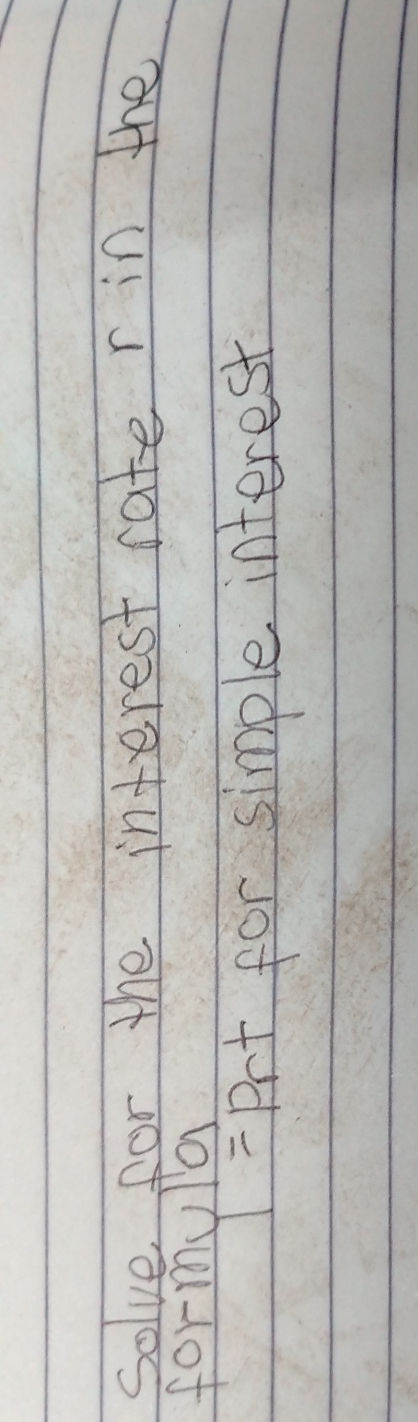 Solve for the interest rate r in the
formula
I = prt for simple interest